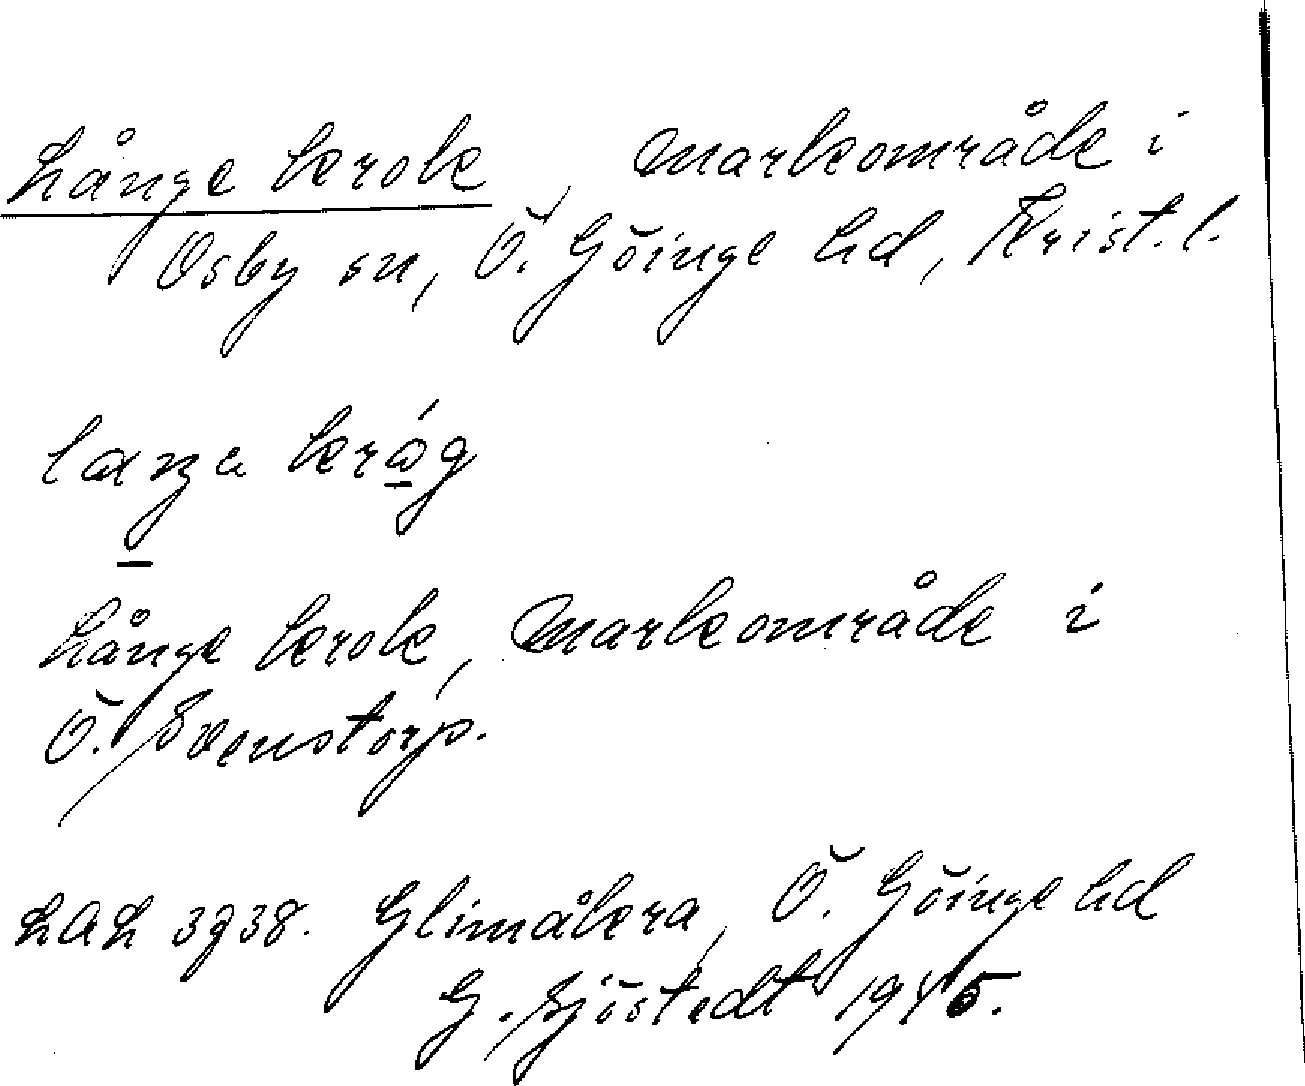 Långe krok, markområde i
Osby sn, Ö. Göinge hd, Krist. l.
Långe krok, markområde i
Ö. Svenstorp.
LAL 3938. Glimåkra, Ö. Göinge hd
G. Sjöstedt 1945.